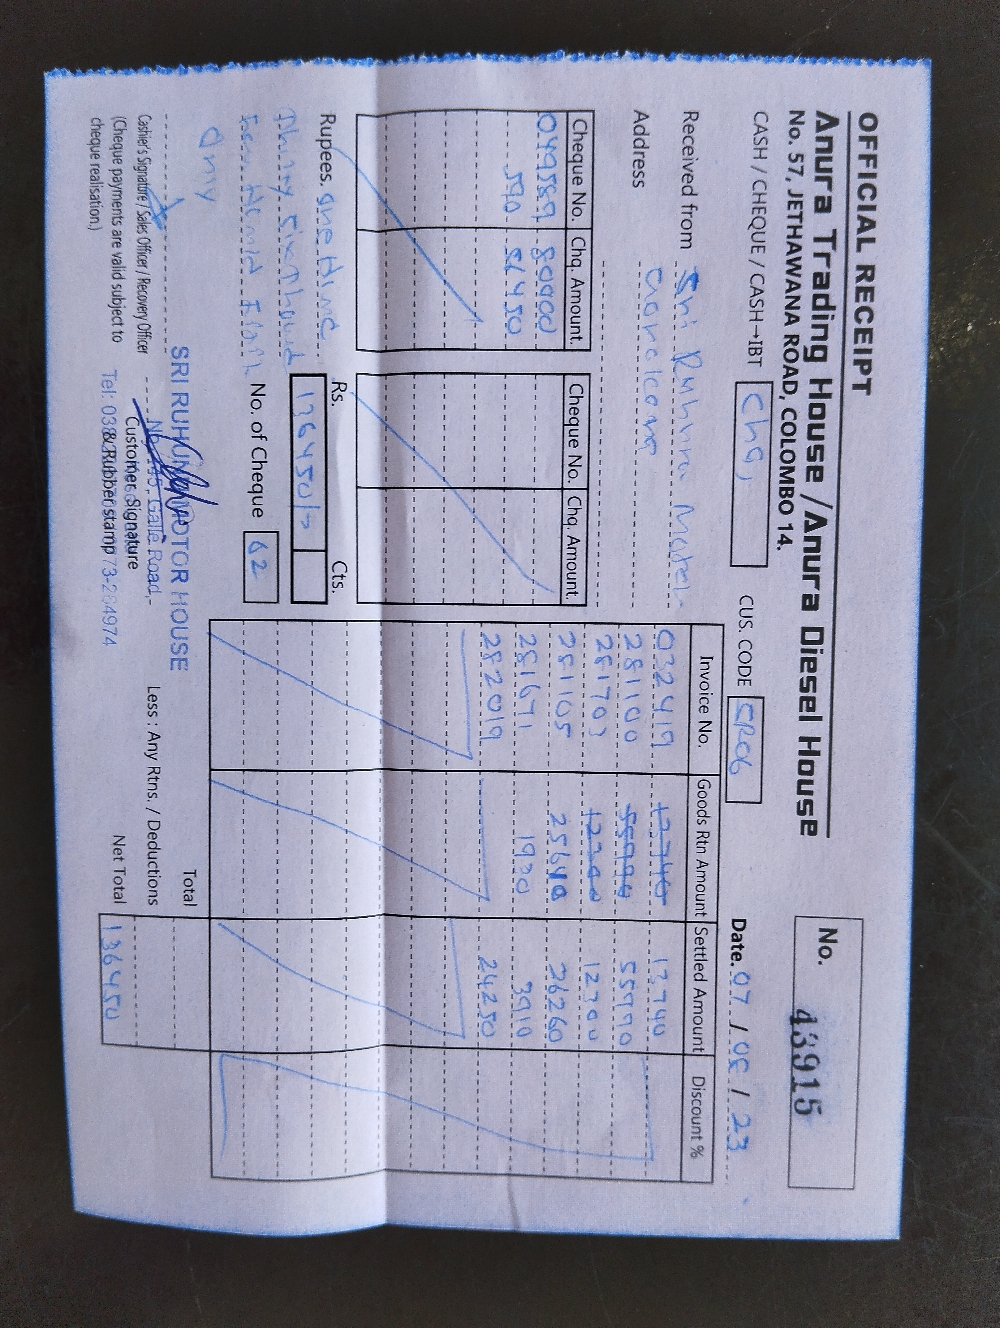 OFFICIAL RECEIPT
Anura Trading House / Anura Diesel House
No. 57, JETHAWANA ROAD, COLOMBO 14.
No. 43915
CASH / CHEQUE / CASH→IBT Chq, CUS. CODE Date. 07 / 08 / 23
Received from Sri Ruhunu Motor
Address
Cheque No. Chq. Amount. Cheque No. Chq. Amount.
049589 80000
590 56450
Rupees. one Hund
Thirty Six Thound
Four Hund Fifty
only
Rs. Cts.
136450/=
No. of Cheque 02
Invoice No. Goods Rtn Amount Settled Amount Discount %
032419 13,740 13,740
281100 55990 55990
281703 12300 12300
281105 25640 26260
281671 1930 3910
282019 24250
Total
Less : Any Rtns. / Deductions
Net Total 136450
SRI RUHUNU MOTOR HOUSE
Galle Road,
Cashier's Signature / Sales Officer / Recovery Officer
Customer Signature
& Rubber stamp
(Cheque payments are valid subject to
cheque realisation.)